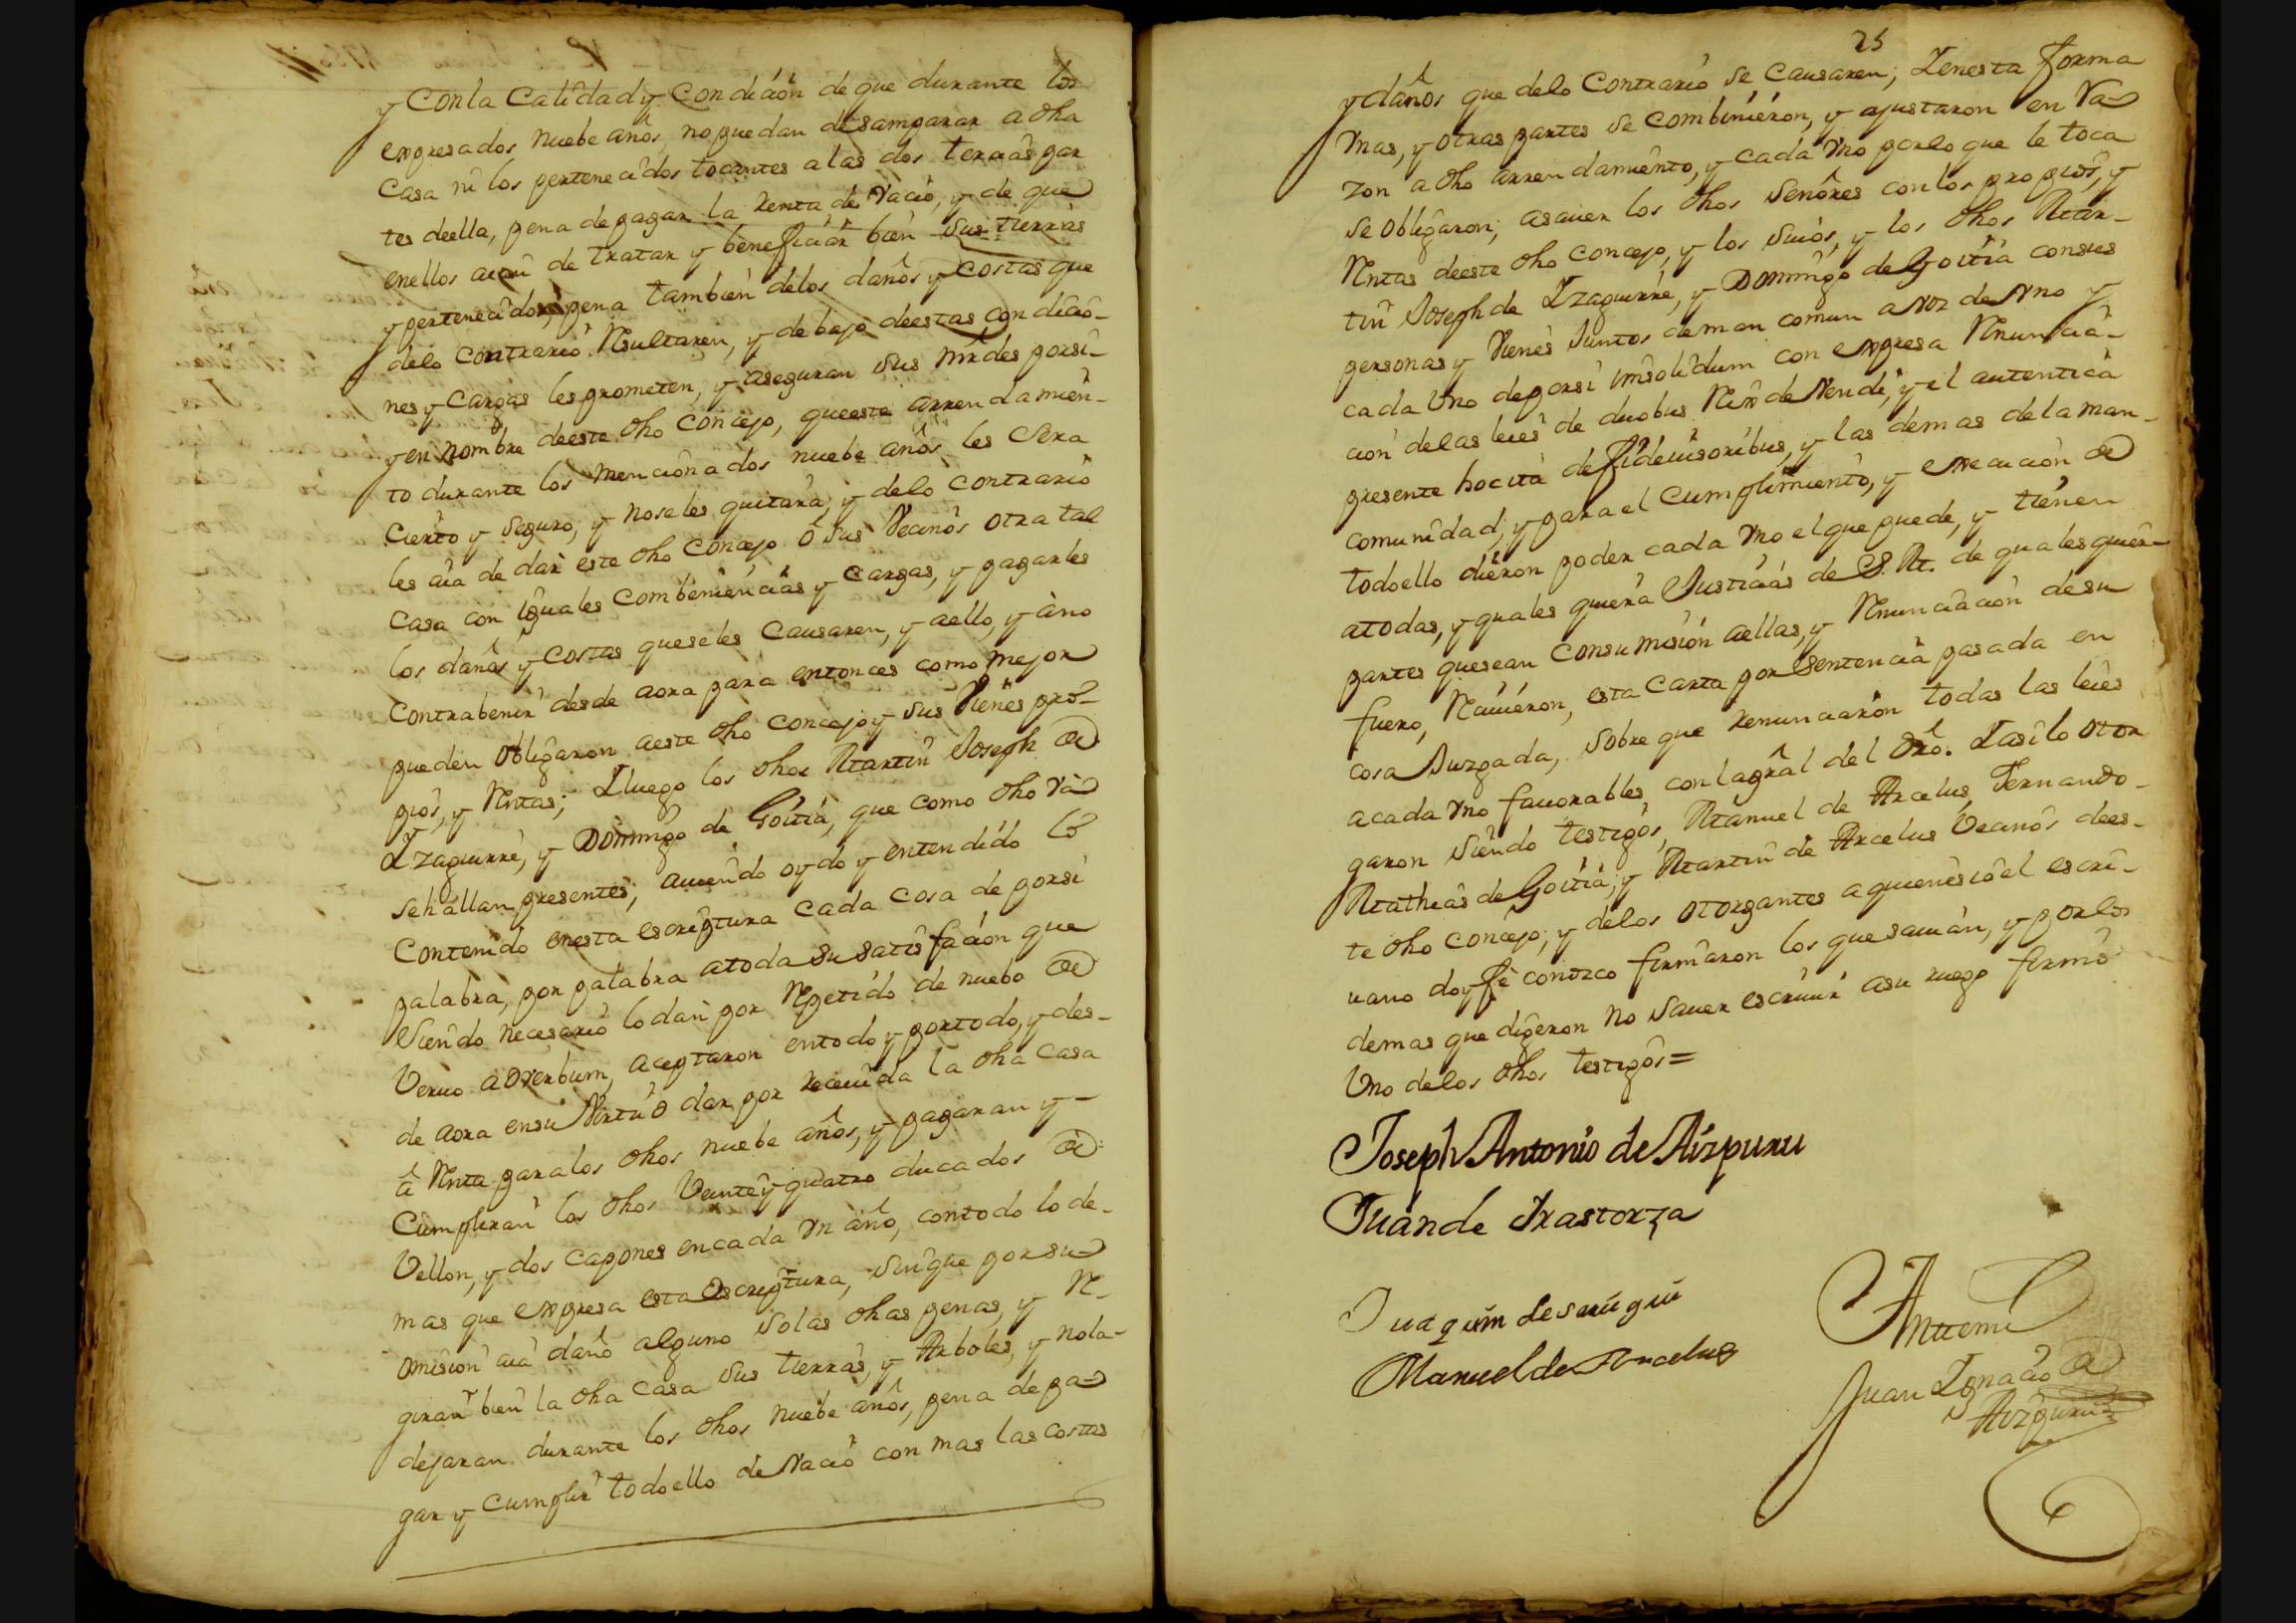 y Con la Calidad y Condición de que durante los
expresados nuebe años, no puedan desamparar a dha
Casa ni los pertenecidos tocantes a las dos terceras par
tes de ella, pena de pagar la renta de Vacio, y de que
en ellos aian de tratar y beneficiar bien sus tierras
y pertenecidos, pena tambien de los daños y costas que
de lo contrario Resultaren, y debajo de estas condicio-
nes y Cargas les prometen, y aseguran sus mrdes por si
y en nombre de este dho Concejo, que este arrendamien-
to durante los mencionados nuebe años les Sera
Cierto y Seguro, y no se les quitara, y de lo contrario
les aia de dar este dho Concejo o sus Vecinos otra tal
Casa con iguales Combeniencias y Cargas, y pagarles
los daños y costas que se les Causaren, y a ello, y a no
Contrabenir desde aora para entonces como mejor
pueden Obligaron a este dho Concejo y sus Vienes pro-
pios, y Rentas; Y luego los dhos Martin Joseph de
Yzaguirre, y Domingo de Goitia, que como dho Va
se hallan presentes, auiendo oydo y entendido lo
Contenido en esta escriptura cada cosa de por si
palabra, por palabra a toda su satisfacion que
Siendo necesario lo dan por Repetido de nuebo de
Veruo adverbum, aceptaron en todo y por todo, y des-
de aora en su Virtud dan por receuida la dha casa
a Renta para los dhos nuebe años, y pagaran y-
Cumpliran los dhos Veinte y quatro ducados de
Vellon, y dos capones en cada vn año, con todo lo de-
mas que expresa esta Escriptura, sin que por su
omision aia daño alguno Solas dhas penas, y Re-
giran bien la dha Casa sus tierras, y Arboles, y no la-
dejaran durante los dhos nuebe años, pena de pa-
gar y Cumplir todo ello de Vacio con mas las costas
25
y daños que de lo Contrario se Causaren; Y en esta forma
Vnas, y otras partes se Combinieron, y ajustaron en Ra-
zon a dho arrendamiento, y cada Vno por lo que le toca
se obligaron; a sauer los dhos Señores con los propios, y
Rentas de este dho Concejo, y los Suios, y los dhos Mar-
tin Joseph de Yzaguirre, y Domingo de Goitia con sus
personas y Vienes Juntos de man comun a voz de Vno y
cada Uno de por si insolidum con expresa Renuncia-
cion de las leies de duobus Rex de Vendi, y el autentica
presente hocita de fideiusoribus, y las demas de la man-
comunidad, y para el Cumplimiento, y execucion de
todo ello dieron poder cada Vno el que puede, y tienen
a todas, y quales quiera Justicias de S. M. de quales quier-
partes que sean Con sumision a ellas, y Renunciacion de su
fuero, Reciuieron, esta Carta por Sentencia pasada en
cosa Juzgada, sobre que renunciaron todas las leies
a cada Vno fauorables con la gral del dro. Y asi lo otor
garon siendo testigos, Manuel de Arcelus, Fernando-
Mathias de Goitia, y Martin de Arcelus Vecinos de es-
te dho Concejo; y de los otorgantes a quienes io el escri-
uano doy fe conozco firmaron los que sauian, y por los
demas que digeron no Sauer escriuir a su ruego firmó
Uno de los dhos testigos=
Joseph Antonio de Aizpuru
Juan de Yrastorza
Juaquim de
Manuel de Arcelus
Antemi
Juan Ygnacio de
Aizpuru